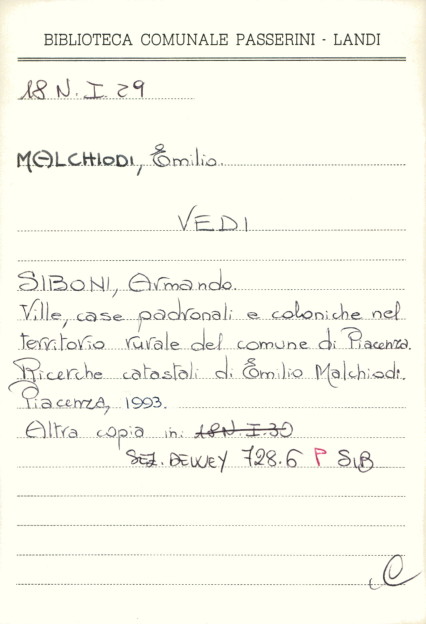 BIBLIOTECA COMUNALE PASSERINI - LANDI
18 N. I. 29
MALCHIODI, Emilio.
VEDI
SIBONI, Armando.
Ville, case padronali e coloniche nel
territorio rurale del comune di Piacenza.
Ricerche catastali di Emilio Malchiodi.
Piacenza, 1993.
Altra copia in: 18N.I.30
SEZ. DEWEY 728.6 P SIB
C